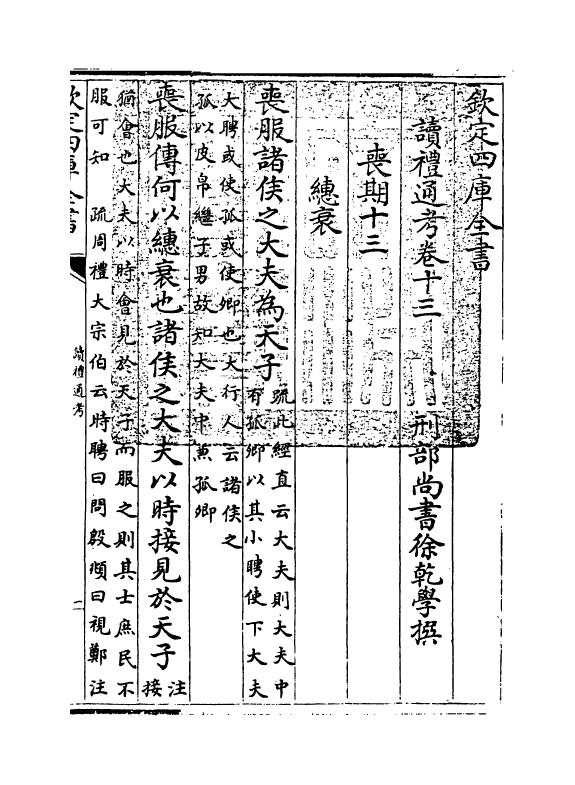 欽定四庫全書
讀禮通考卷十三
刑部尚書徐乾學撰
喪期十三
繐衰
喪服諸侯之大夫為天子
疏此經直云大夫則大夫中
有孤卿以其小聘使下大夫
大聘或使孤或使卿也大行人云諸侯之
孤以皮帛繼子男故知大夫中兼孤卿
喪服傳何以繐衰也諸侯之大夫以時接見於天子
注
接
猶會也大夫以時會見於天子而服之則其士庶民不
服可知 疏周禮大宗伯云時聘曰問殷覜曰視鄭注
欽定四庫全書
讀禮通考